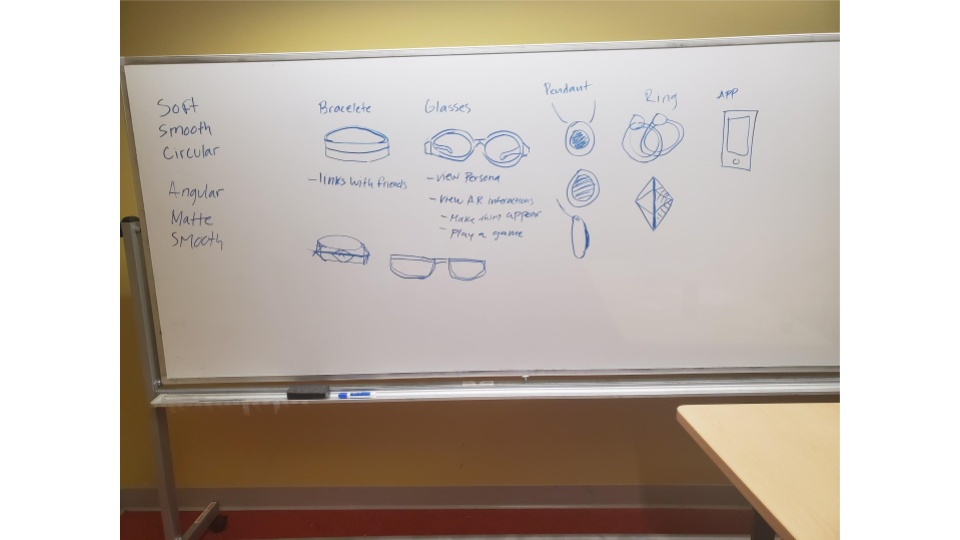 Soft
Smooth
Circular
Angular
Matte
Smooth
Bracelete
- links with friends
Glasses
- view Persona
- view AR interactions
- Make thing appear
- Play a game
Pendant
Ring
APP